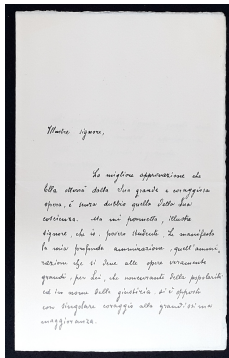 Illustre signore,
La migliore approvazione che
Ella otterrà dalla Sua grande e coraggiosa
opera, è senza dubbio quella della Sua
coscienza. Ma mi permetta, illustre
signore, che io, povero studente, Le manifesti
la mia profonda ammirazione, quell'ammi-
razione che si deve alle opere veramente
grandi, per Lei, che noncurante della popolarità
ed in nome della giustizia si è opposto
con singolare coraggio alla grandissima
maggioranza.